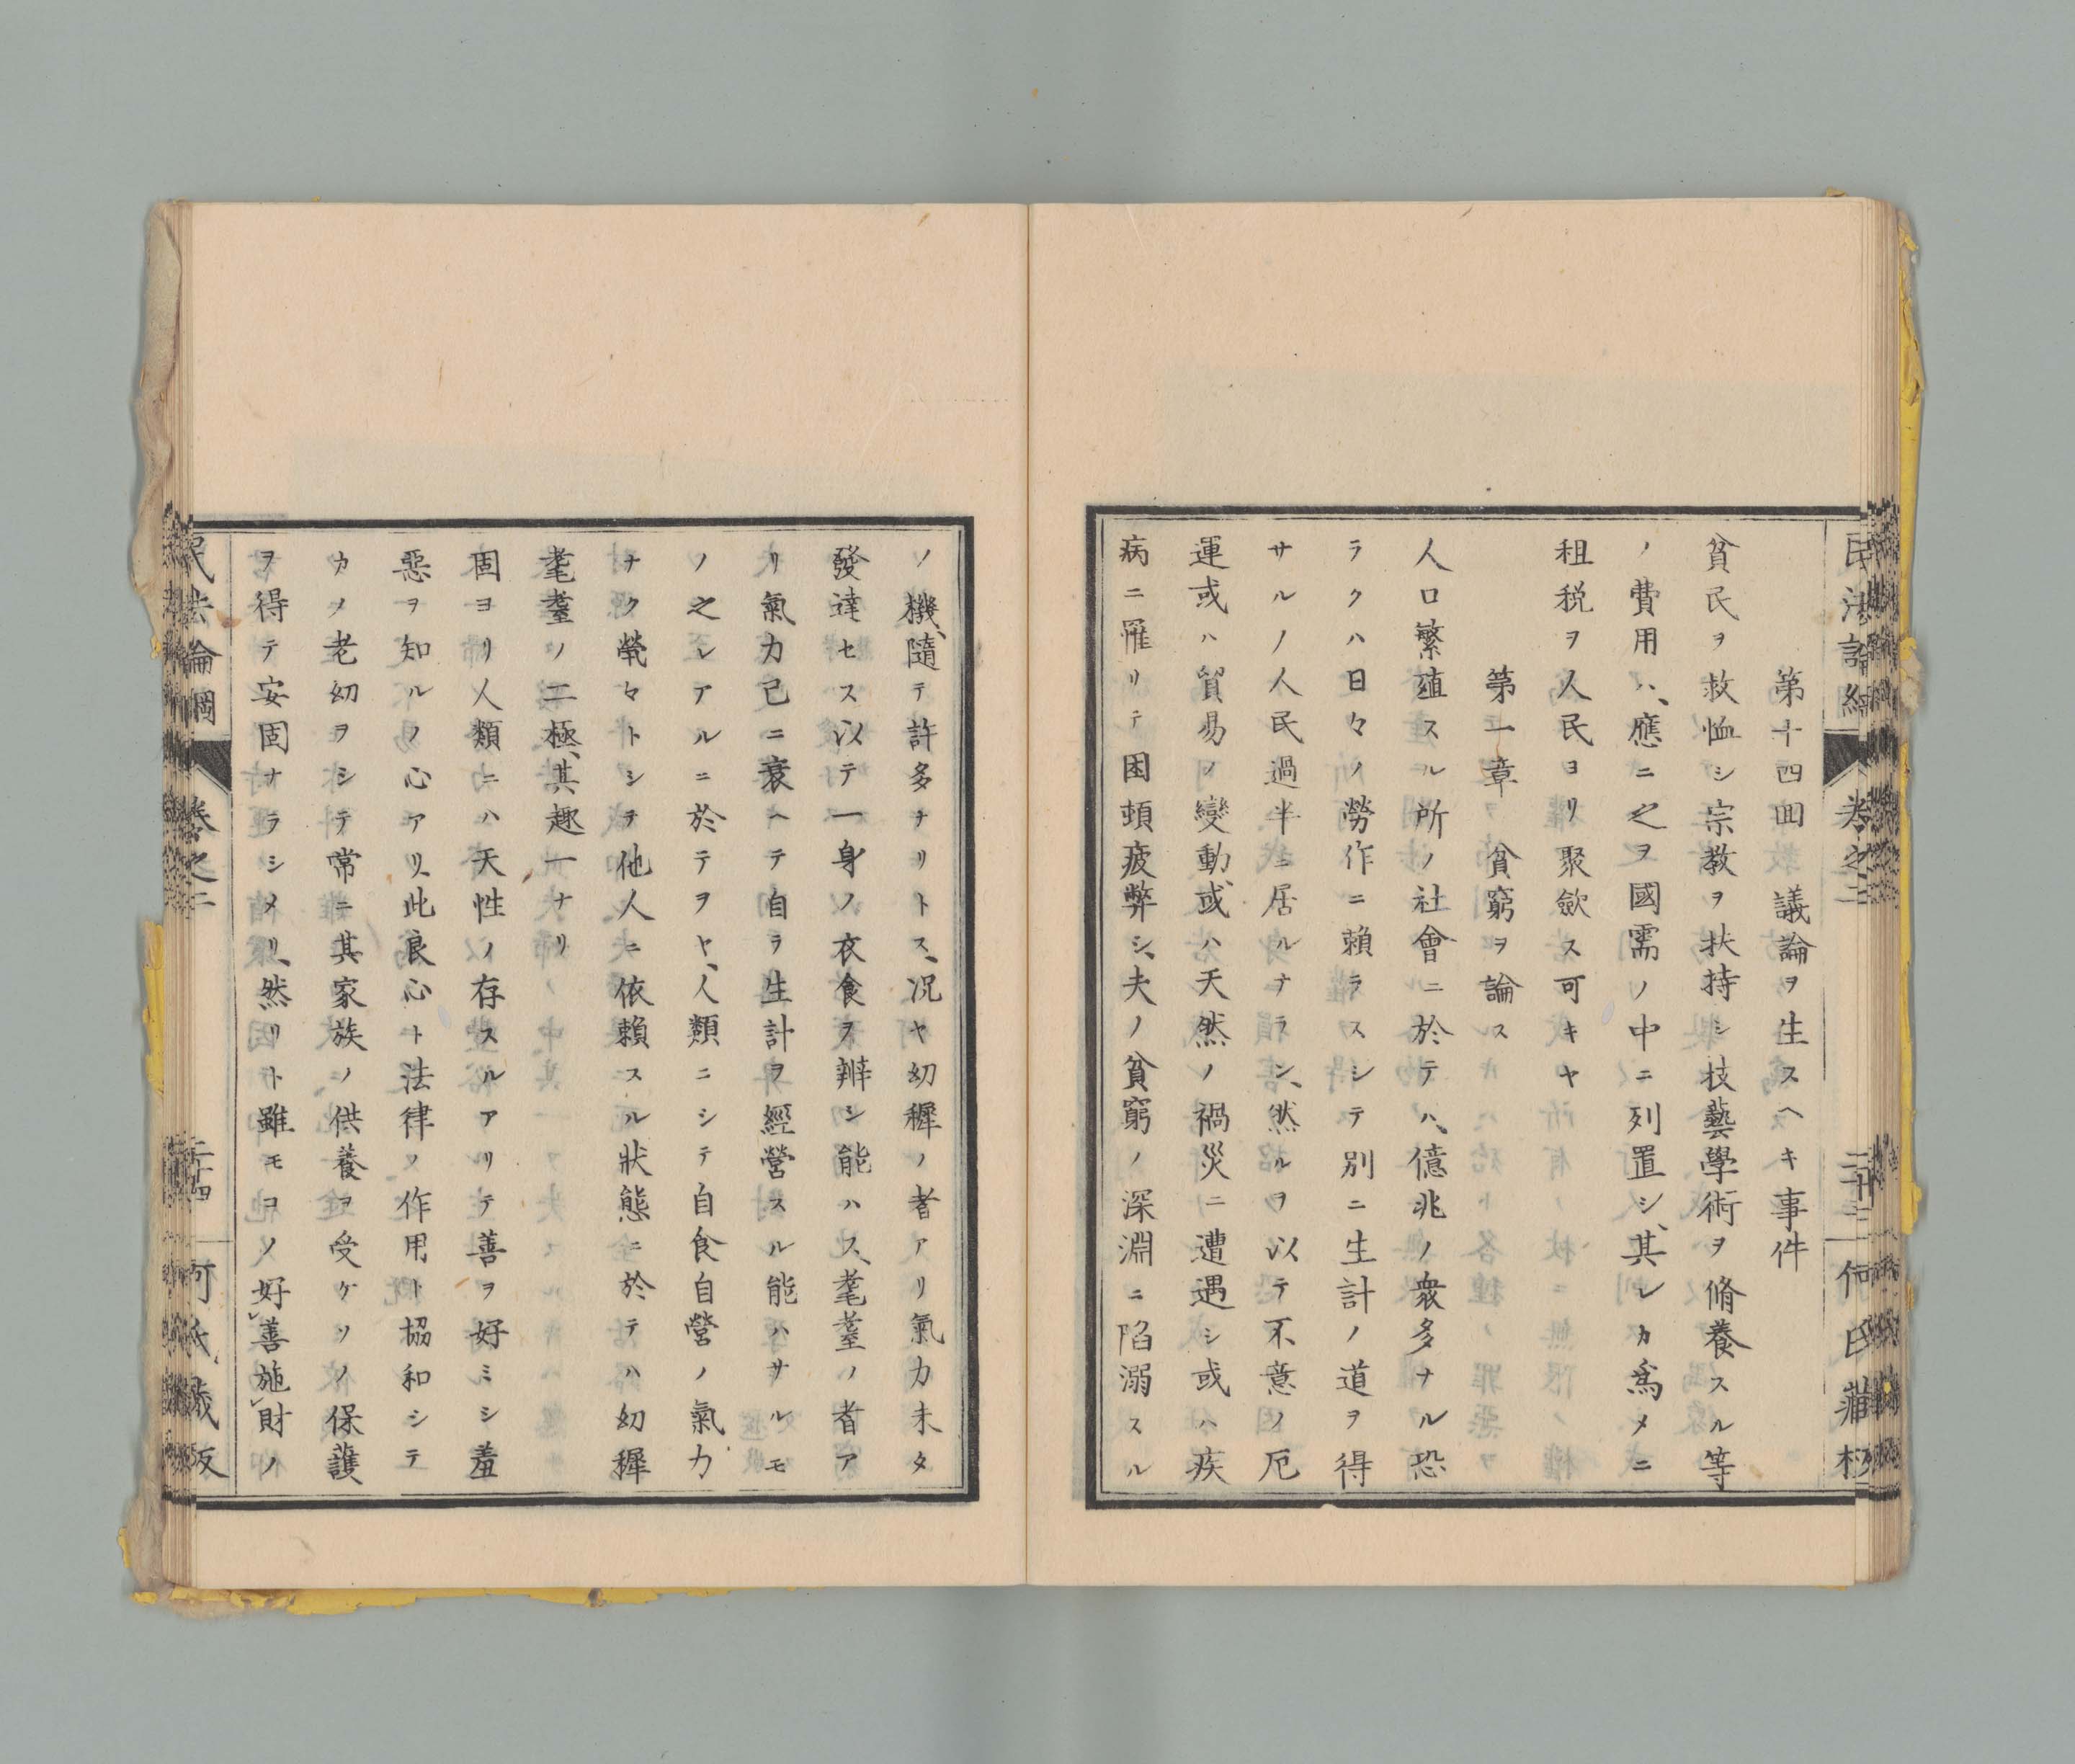 民法論綱 卷之二 二十三 何氏藏板
第十四回 議論ヲ生スヘキ事件
貧民ヲ救恤シ宗教ヲ扶持シ技藝學術ヲ脩養スル等
ノ費用ハ、應ニ之ヲ國需ノ中ニ列置シ、其レカ爲メニ
租税ヲ人民ヨリ聚歛ス可キヤ
第一章 貧窮ヲ論ス
人口繁殖スル所ノ社會ニ於テハ、億兆ノ衆多ナル恐
ラクハ日々ノ勞作ニ賴ラスシテ別ニ生計ノ道ヲ得
サルノ人民過半ニ居ルナラン、然ルヲ以テ不意ノ厄
運或ハ貿易ノ變動、或ハ天然ノ禍災ニ遭遇シ或ハ疾
病ニ罹リテ困頓疲弊シ、夫ノ貧窮ノ深淵ニ陷溺スル
ノ機、隨テ許多ナリトス、况ヤ幼穉ノ者アリ氣力未タ
發達セス以テ一身ノ衣食ヲ辨シ能ハス、耄耋ノ者ア
リ氣力已ニ衰ヘテ自ラ生計ヲ經營スル能ハサルモ
ノ之レアルニ於テヲヤ、人類ニシテ自食自營ノ氣力
ナク煢々トシテ他人ニ依賴スル狀態ニ於テハ幼穉
耄耋ノ二極、其趣一ナリ
固ヨリ人類ニハ天性ノ存スルアリテ善ヲ好ミシ羞
惡ヲ知ルノ心アリ、此良心ト法律ノ作用ト協和シテ
カノ老幼ヲシテ常ニ其家族ノ供養ヲ受ケソノ保護
ヲ得テ安固ナラシメリ、然リト雖モヨノ好善施財ノ
民法論綱 卷之二 二十四 何氏藏板